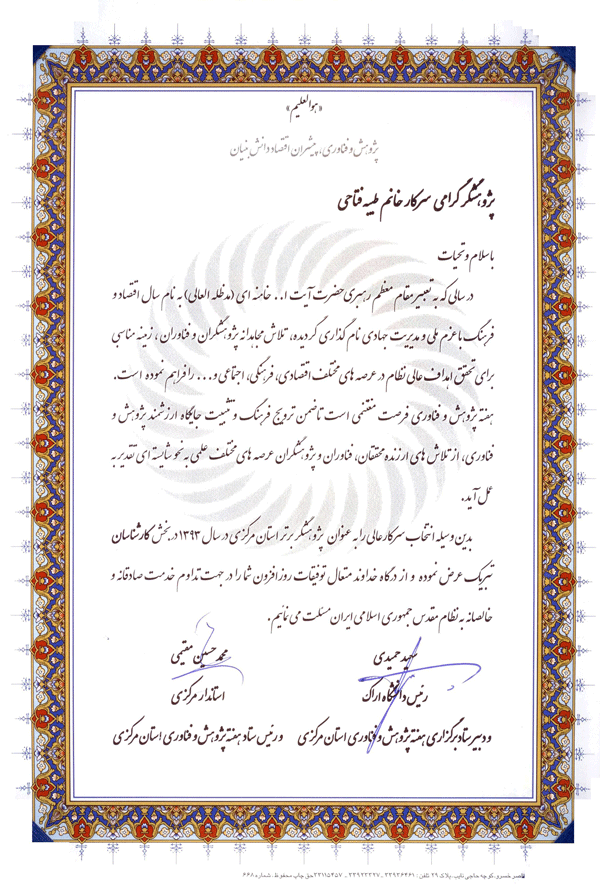 «هوالعلیم»
پژوهش و فناوری، پیشران اقتصاد دانش بنیان
پژوهشگر گرامی سرکار خانم طیبه فتاحی
باسلام و تحیات
در سالی که به تعبیر مقام معظم رهبری حضرت آیت ا... خامنه ای (مدظله العالی) به نام سال اقتصاد و
فرهنگ با عزم ملی و مدیریت جهادی نام گذاری گردیده، تلاش مجاهدانه پژوهشگران و فناوران، زمینه مناسبی
برای تحقق اهداف عالی نظام در عرصه های مختلف اقتصادی، فرهنگی، اجتماعی و... را فراهم نموده است.
هفته پژوهش و فناوری فرصت مغتنمی است تا ضمن ترویج فرهنگ و تثبیت جایگاه ارزشمند پژوهش و
فناوری، از تلاش های ارزنده محققان، فناوران و پژوهشگران عرصه های مختلف علمی به نحو شایسته ای تقدیر به
عمل آید.
بدین وسیله انتخاب سرکارعالی را به عنوان پژوهشگر برتر استان مرکزی در سال ۱۳۹۳ در بخش کارشناسان
تبریک عرض نموده و از درگاه خداوند متعال توفیقات روزافزون شما را در جهت تداوم خدمت صادقانه و
خالصانه به نظام مقدس جمهوری اسلامی ایران مسئلت می نمائیم.
سعید حمیدی
رئیس دانشگاه اراک
و دبیر ستاد برگزاری هفته پژوهش و فناوری استان مرکزی
محمد حسین مقیمی
استاندار مرکزی
و رئیس ستاد هفته پژوهش و فناوری استان مرکزی
ناصر خسرو، کوچه حاجی نایب، پلاک ۲۹ تلفن: ۳۳۹۳۶۴۶۱ - ۳۳۹۲۳۳۲۷ - ۳۳۱۱۵۴۵۷ حق چاپ محفوظ. شماره ۶۶۸